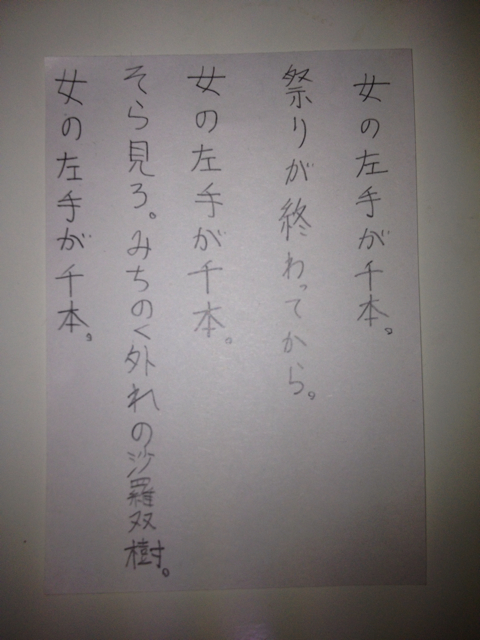 女の左手が千本。
祭りが終わってから。
女の左手が千本。
そら見ろ。みちのく外れの沙羅双樹。
女の左手が千本。